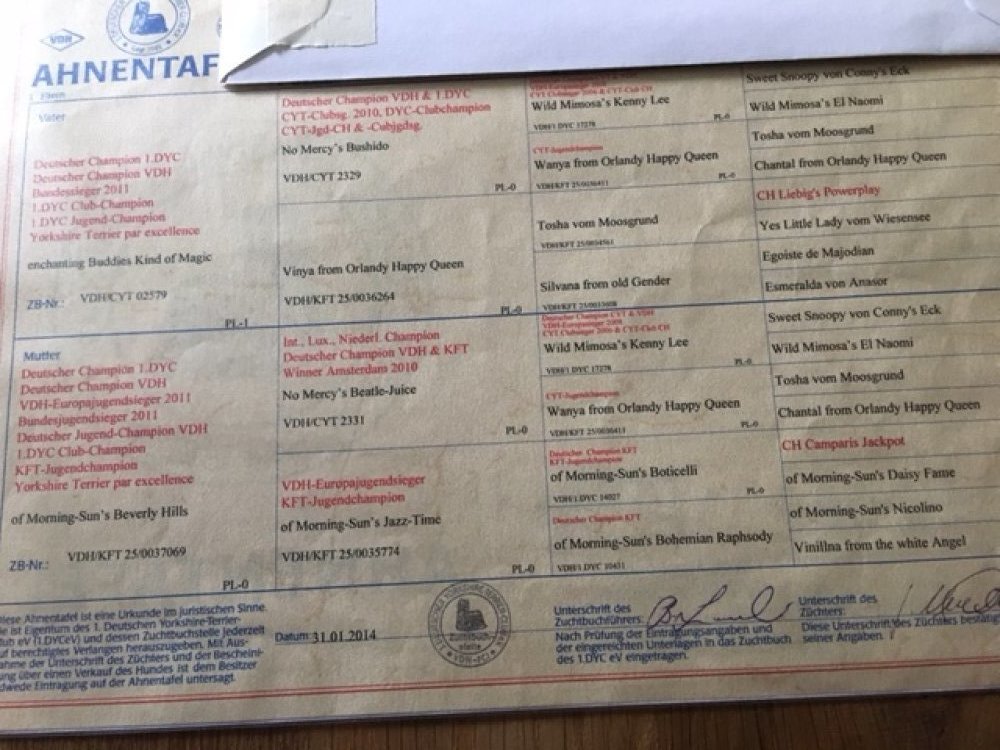 VDH
AHNENTAF
Vater
Deutscher Champion 1.DYC
Deutscher Champion VDH
Bundessieger 2011
1.DYC Club-Champion
1 DYC Jugend-Champion
Yorkshire Terrier par excellence
enchanting Buddies Kind of Magic
ZB-Nr.: VDH/CYT 02579
PL-1
Mutter
Deutscher Champion 1.DYC
Deutscher Champion VDH
VDH-Europajugendsieger 2011
Bundesjugendsieger 2011
Deutscher Jugend-Champion VDH
1.DYC Club-Champion
KFT-Jugendchampion
Yorkshire Terrier par excellence
of Morning-Sun's Beverly Hills
ZB-Nr.: VDH/KFT 25/0037069
PL-0
Deutscher Champion VDH & 1.DYC
CYT-Clubsg. 2010, DYC-Clubchampion
CYT-Jgd-CH & -Cubjgdsg.
No Mercy's Bushido
VDH/CYT 2329
PL-0
Vinya from Orlandy Happy Queen
VDH/KFT 25/0036264
PL-0
Int., Lux., Niederl. Champion
Deutscher Champion VDH & KFT
Winner Amsterdam 2010
No Mercy's Beatle-Juice
VDH/CYT 2331
PL-0
VDH-Europajugendsieger
KFT-Jugendchampion
of Morning-Sun's Jazz-Time
VDH/KFT 25/0035774
PL-0
Wild Mimosa's Kenny Lee
VDH/1 DYC 17278
PL-0
CYT-Jugendchampion
Wanya from Orlandy Happy Queen
VDH/KFT 25/0036411
PL-0
Tosha vom Moosgrund
Silvana from old Gender
Deutscher Champion CYT & VDH
VDH-Europasieger 2008
CYT Clubsieger 2006 & CYT-Club CH
Wild Mimosa's Kenny Lee
VDH/1 DYC 17278
PL-0
CYT-Jugendchampion
Wanya from Orlandy Happy Queen
VDH/KFT 25/0036411
PL-0
Deutscher Champion KFT
KFT-Jugendchampion
of Morning-Sun's Boticelli
VDH/1 DYC 14027
PL-0
Deutscher Champion KFT
of Morning-Sun's Bohemian Raphsody
VDH/1 DYC 10431
Sweet Snoopy von Conny's Eck
Wild Mimosa's El Naomi
Tosha vom Moosgrund
Chantal from Orlandy Happy Queen
CH Liebig's Powerplay
Yes Little Lady vom Wiesensee
Egoiste de Majodian
Esmeralda von Anasor
Sweet Snoopy von Conny's Eck
Wild Mimosa's El Naomi
Tosha vom Moosgrund
Chantal from Orlandy Happy Queen
CH Camparis Jackpot
of Morning-Sun's Daisy Fame
of Morning-Sun's Nicolino
Vinillna from the white Angel
iese Ahnentafel ist eine Urkunde im juristischen Sinne.
ie ist Eigentum des 1. Deutschen Yorkshire-Terrier-
lub eV (1.DYCeV) und dessen Zuchtbuchstelle jederzeit
uf berechtigtes Verlangen herauszugeben. Mit Aus-
ahme der Unterschrift des Züchters und der Bescheini-
ung über einen Verkauf des Hundes ist dem Besitzer
edwede Eintragung auf der Ahnentafel untersagt.
Datum: 31.01.2014
Zuchtbuch
stelle
VDH-FCI
Unterschrift des
Zuchtbuchführers:
Nach Prüfung der Eintragungsangaben und
der eingereichten Unterlagen in das Zuchtbuch
des 1.DYC eV eingetragen.
Unterschrift des
Züchters:
Diese Unterschrift des Züchters bestätig
seiner Angaben.